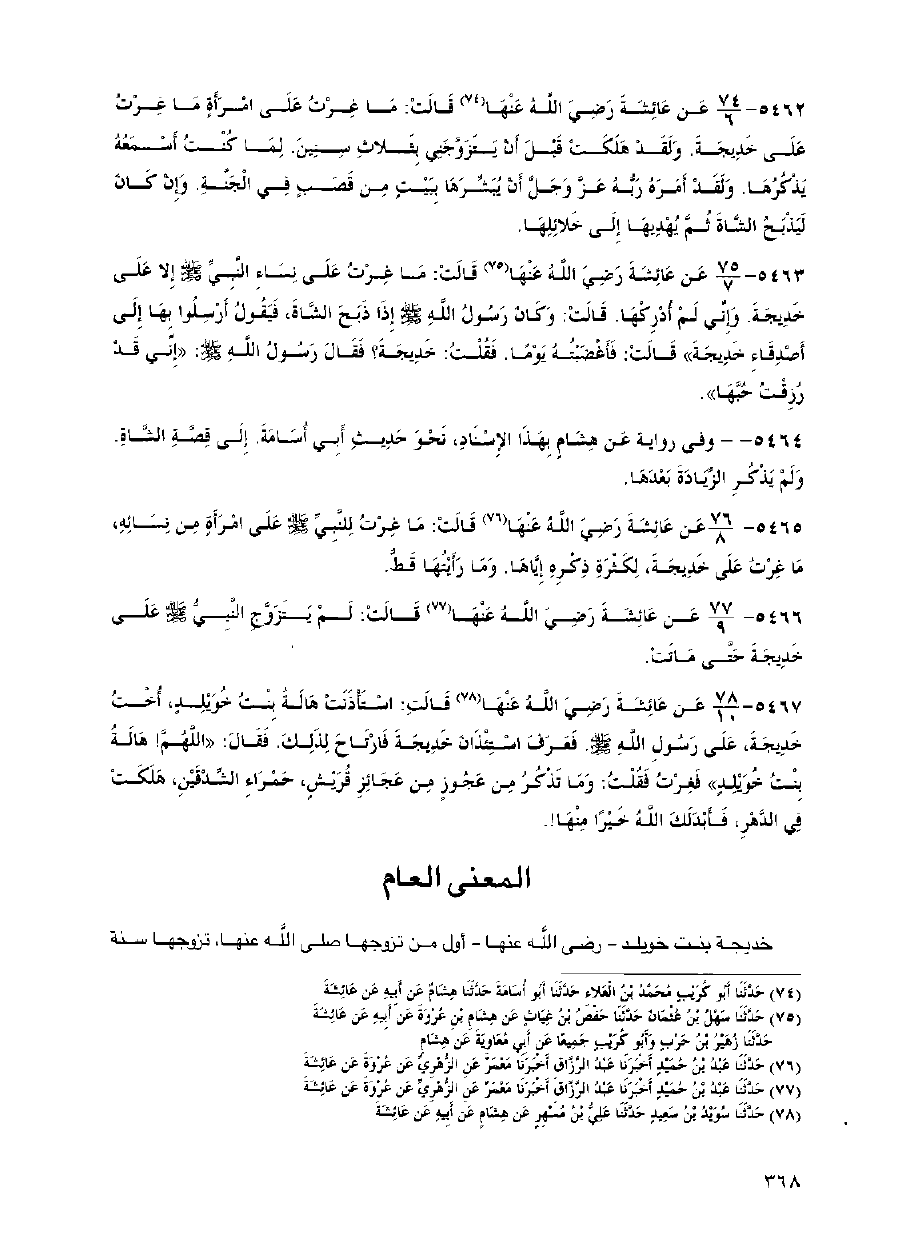 ٥٤٦٢- ٧٤/٦ عَن عَائِشَةَ رَضِيَ اللَّهُ عَنْهَا(٧٤) قَالَتْ: مَا غِرْتُ عَلَى امْرَأَةٍ مَا غِرْتُ
عَلَى خَدِيجَةَ. وَلَقَدْ هَلَكَتْ قَبْلَ أَنْ يَتَزَوَّجَنِي بِثَلاثِ سِنِينَ. لِمَا كُنْتُ أَسْمَعُهُ
يَذْكُرُهَا. وَلَقَدْ أَمَرَهُ رَبُّهُ عَزَّ وَجَلَّ أَنْ يُبَشِّرَهَا بِبَيْتٍ مِن قَصَبٍ فِي الْجَنَّةِ. وَإِنْ كَانَ
لَيَذْبَحُ الشَّاةَ ثُمَّ يُهْدِيهَا إِلَى خَلائِلِهَا.
٥٤٦٣- ٧٥/٧ عَن عَائِشَةَ رَضِيَ اللَّهُ عَنْهَا(٧٥) قَالَتْ: مَا غِرْتُ عَلَى نِسَاءِ النَّبِيِّ ﷺ إِلا عَلَى
خَدِيجَةَ. وَإِنِّي لَمْ أُدْرِكْهَا. قَالَتْ: وَكَانَ رَسُولُ اللَّهِ ﷺ إِذَا ذَبَحَ الشَّاةَ، فَيَقُولُ أَرْسِلُوا بِهَا إِلَى
أَصْدِقَاءِ خَدِيجَةَ» قَالَتْ: فَأَغْضَبْتُهُ يَوْمًا. فَقُلْتُ: خَدِيجَةَ؟ فَقَالَ رَسُولُ اللَّهِ ﷺ: «إِنِّي قَدْ
رُزِقْتُ حُبَّهَا».
٥٤٦٤- - وفى رواية عَن هِشَامٍ بِهَذَا الإِسْنَادِ، نَحْوَ حَدِيثِ أَبِي أُسَامَةَ. إِلَى قِصَّةِ الشَّاةِ.
وَلَمْ يَذْكُرِ الزِّيَادَةَ بَعْدَهَا.
٥٤٦٥- ٧٦/٨ عَن عَائِشَةَ رَضِيَ اللَّهُ عَنْهَا(٧٦) قَالَتْ: مَا غِرْتُ لِلنَّبِيِّ ﷺ عَلَى امْرَأَةٍ مِن نِسَائِهِ،
مَا غِرْتُ عَلَى خَدِيجَةَ، لِكَثْرَةِ ذِكْرِهِ إِيَّاهَا. وَمَا رَأَيْتُهَا قَطُّ.
٥٤٦٦- ٧٧/٩ عَن عَائِشَةَ رَضِيَ اللَّهُ عَنْهَا(٧٧) قَالَتْ: لَمْ يَتَزَوَّجِ النَّبِيُّ ﷺ عَلَى
خَدِيجَةَ حَتَّى مَاتَتْ.
٥٤٦٧- ٧٨/١٠ عَن عَائِشَةَ رَضِيَ اللَّهُ عَنْهَا(٧٨) قَالَتِ: اسْتَأْذَنَتْ هَالَةُ بِنْتُ خُوَيْلِدٍ، أُخْتُ
خَدِيجَةَ، عَلَى رَسُولِ اللَّهِ ﷺ. فَعَرَفَ اسْتِئْذَانَ خَدِيجَةَ فَارْتَاحَ لِذَلِكَ. فَقَالَ: «اللَّهُمَّ! هَالَةُ
بِنْتُ خُوَيْلِدٍ» فَغِرْتُ فَقُلْتُ: وَمَا تَذْكُرُ مِن عَجُوزٍ مِن عَجَائِزِ قُرَيْشٍ، حَمْرَاءِ الشِّدْقَيْنِ، هَلَكَتْ
فِي الدَّهْرِ، فَأَبْدَلَكَ اللَّهُ خَيْرًا مِنْهَا!.
المعنى العام
خديجة بنت خويلد - رضى اللَّه عنها - أول من تزوجها صلى اللَّه عنها، تزوجها سنة
(٧٤) حَدَّثَنَا أَبُو كُرَيْبٍ مُحَمَّدُ بْنُ الْعَلاءِ حَدَّثَنَا أَبُو أُسَامَةَ حَدَّثَنَا هِشَامٌ عَن أَبِيهِ عَن عَائِشَةَ
(٧٥) حَدَّثَنَا سَهْلُ بْنُ عُثْمَانَ حَدَّثَنَا حَفْصُ بْنُ غِيَاثٍ عَن هِشَامِ بْنِ عُرْوَةَ عَن أَبِيهِ عَن عَائِشَةَ
حَدَّثَنَا زُهَيْرُ بْنُ حَرْبٍ وَأَبُو كُرَيْبٍ جَمِيعًا عَن أَبِي مُعَاوِيَةَ عَن هِشَامٍ
(٧٦) حَدَّثَنَا عَبْدُ بْنُ حُمَيْدٍ أَخْبَرَنَا عَبْدُ الرَّزَّاقِ أَخْبَرَنَا مَعْمَرٌ عَن الزُّهْرِيِّ عَن عُرْوَةَ عَن عَائِشَةَ
(٧٧) حَدَّثَنَا عَبْدُ بْنُ حُمَيْدٍ أَخْبَرَنَا عَبْدُ الرَّزَّاقِ أَخْبَرَنَا مَعْمَرٌ عَن الزُّهْرِيِّ عَن عُرْوَةَ عَن عَائِشَةَ
(٧٨) حَدَّثَنَا سُوَيْدُ بْنُ سَعِيدٍ حَدَّثَنَا عَلِيُّ بْنُ مُسْهِرٍ عَن هِشَامٍ عَن أَبِيهِ عَن عَائِشَةَ
٣٦٨